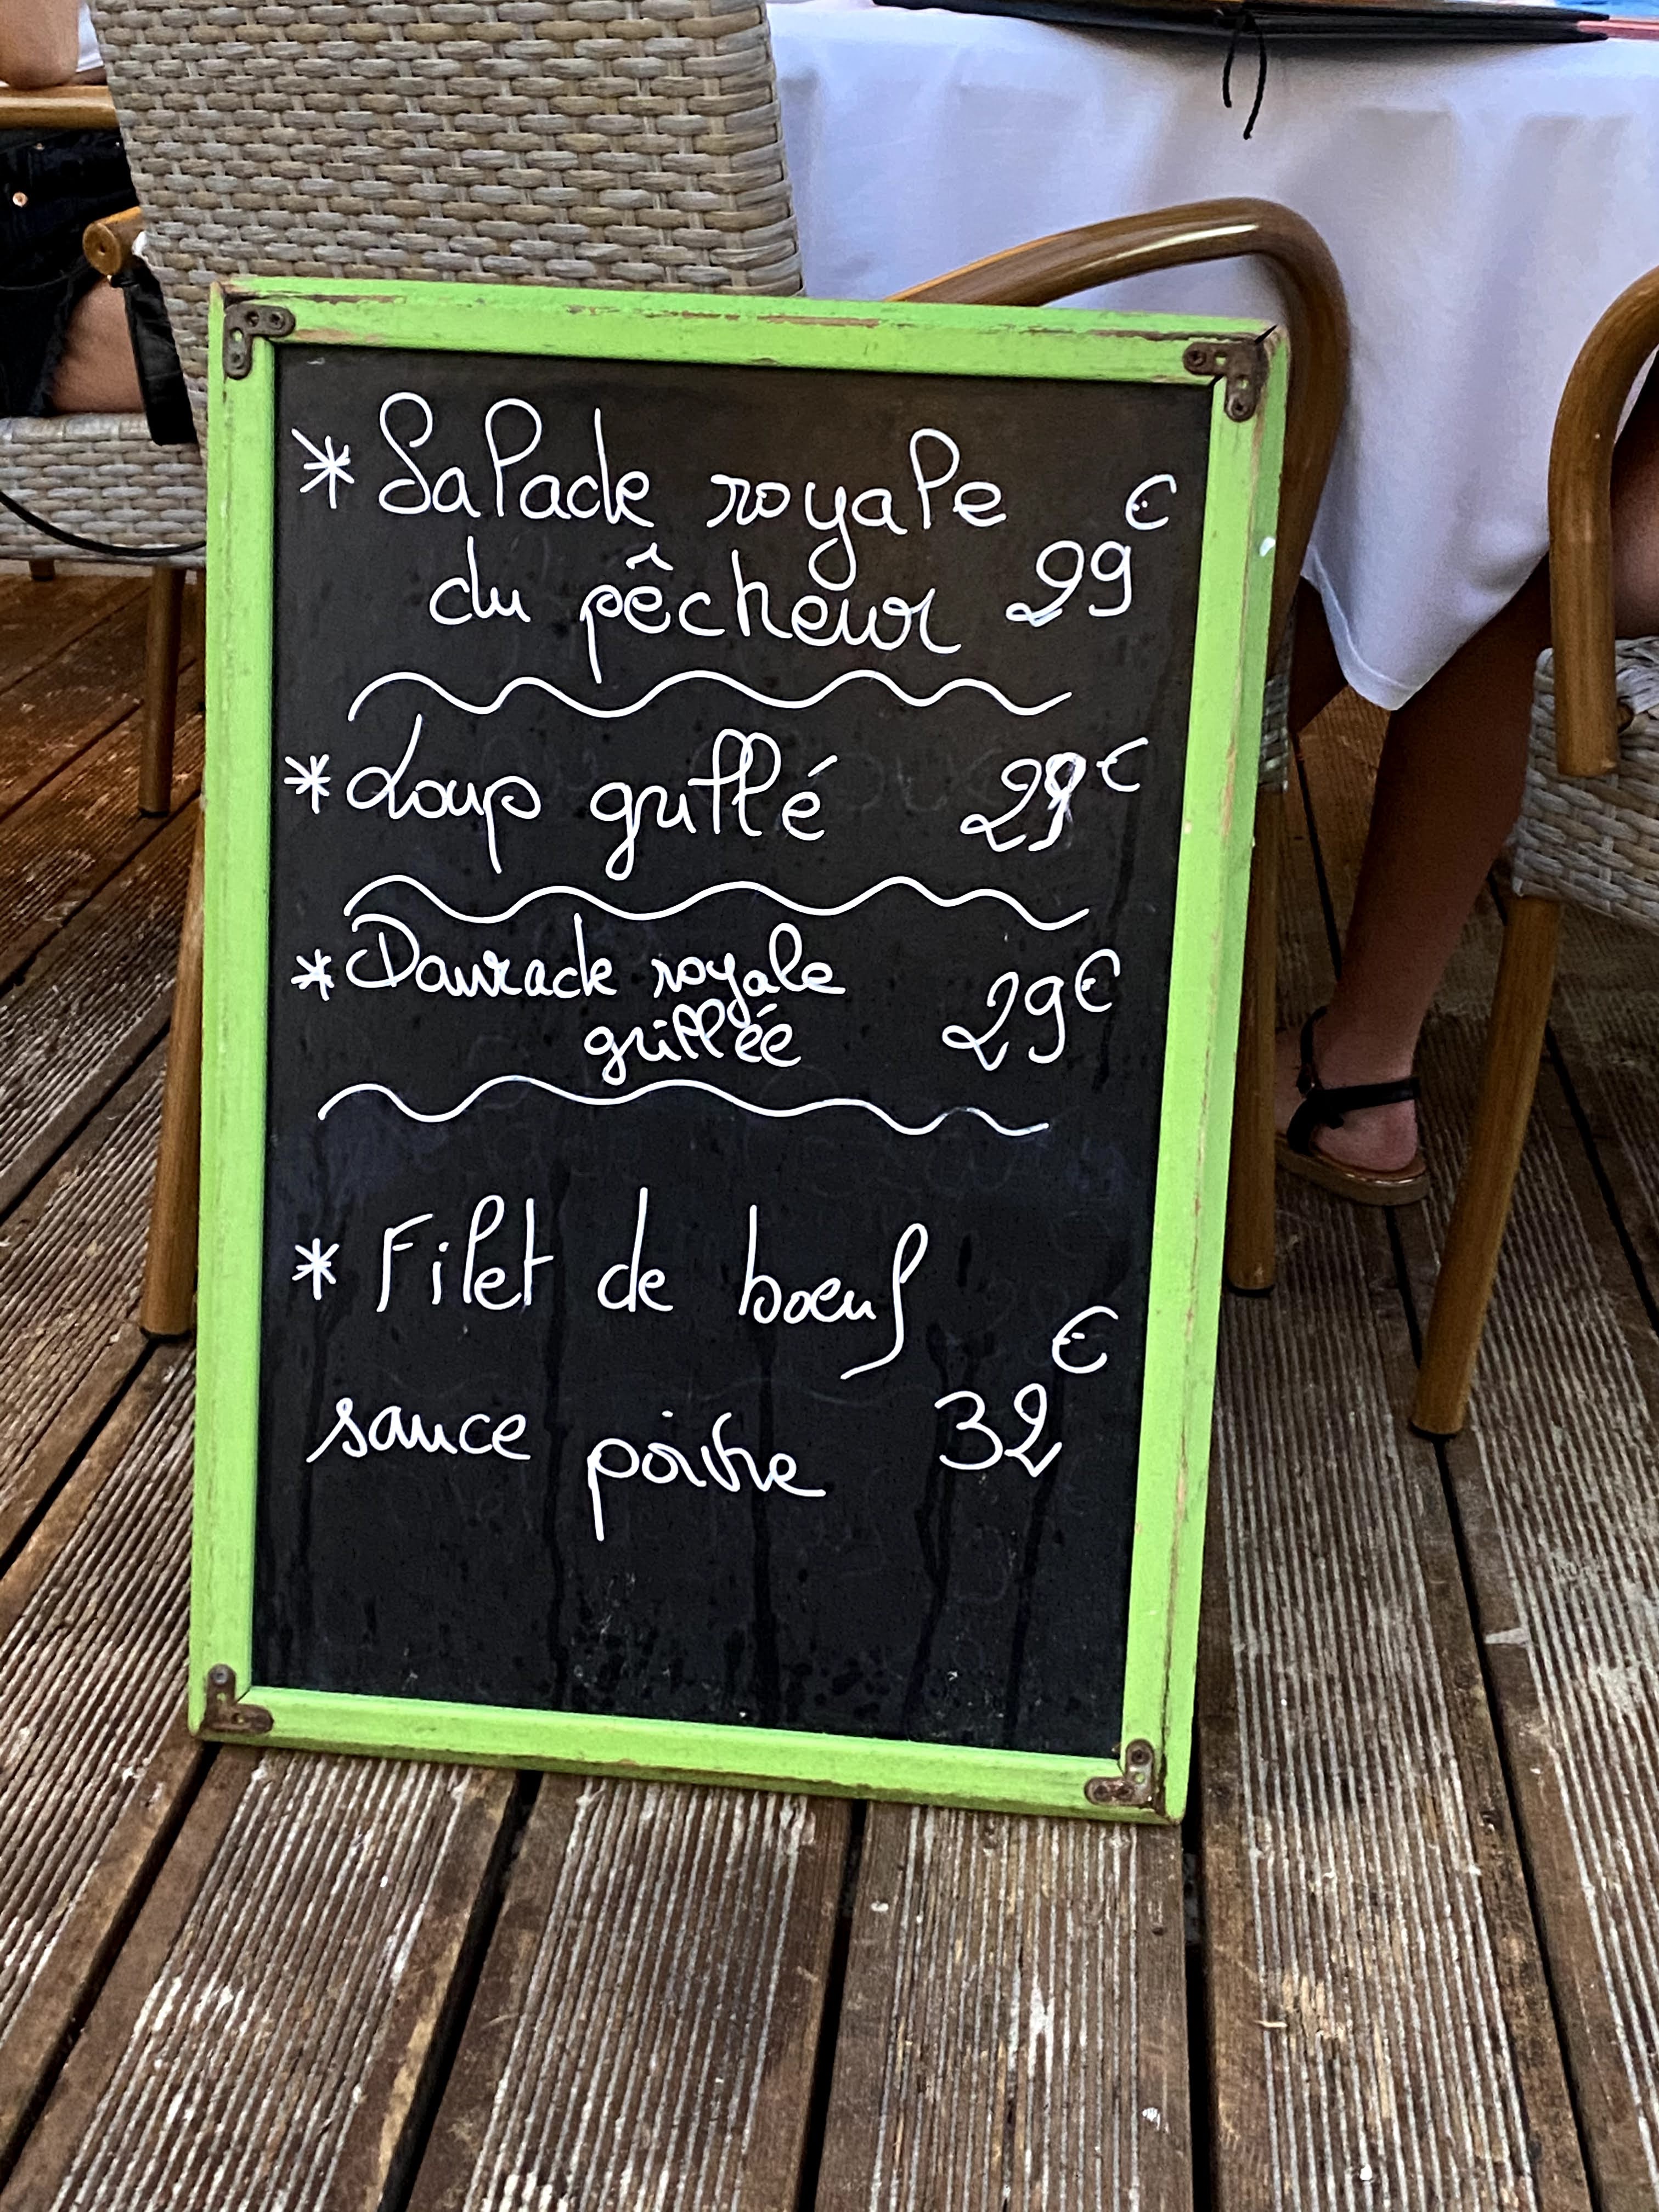 * Salade royale €
du pêcheur 29
* Loup grillé 29€
* Daurade royale
grillée 29€
* Filet de bœuf
€
sauce poivre 32